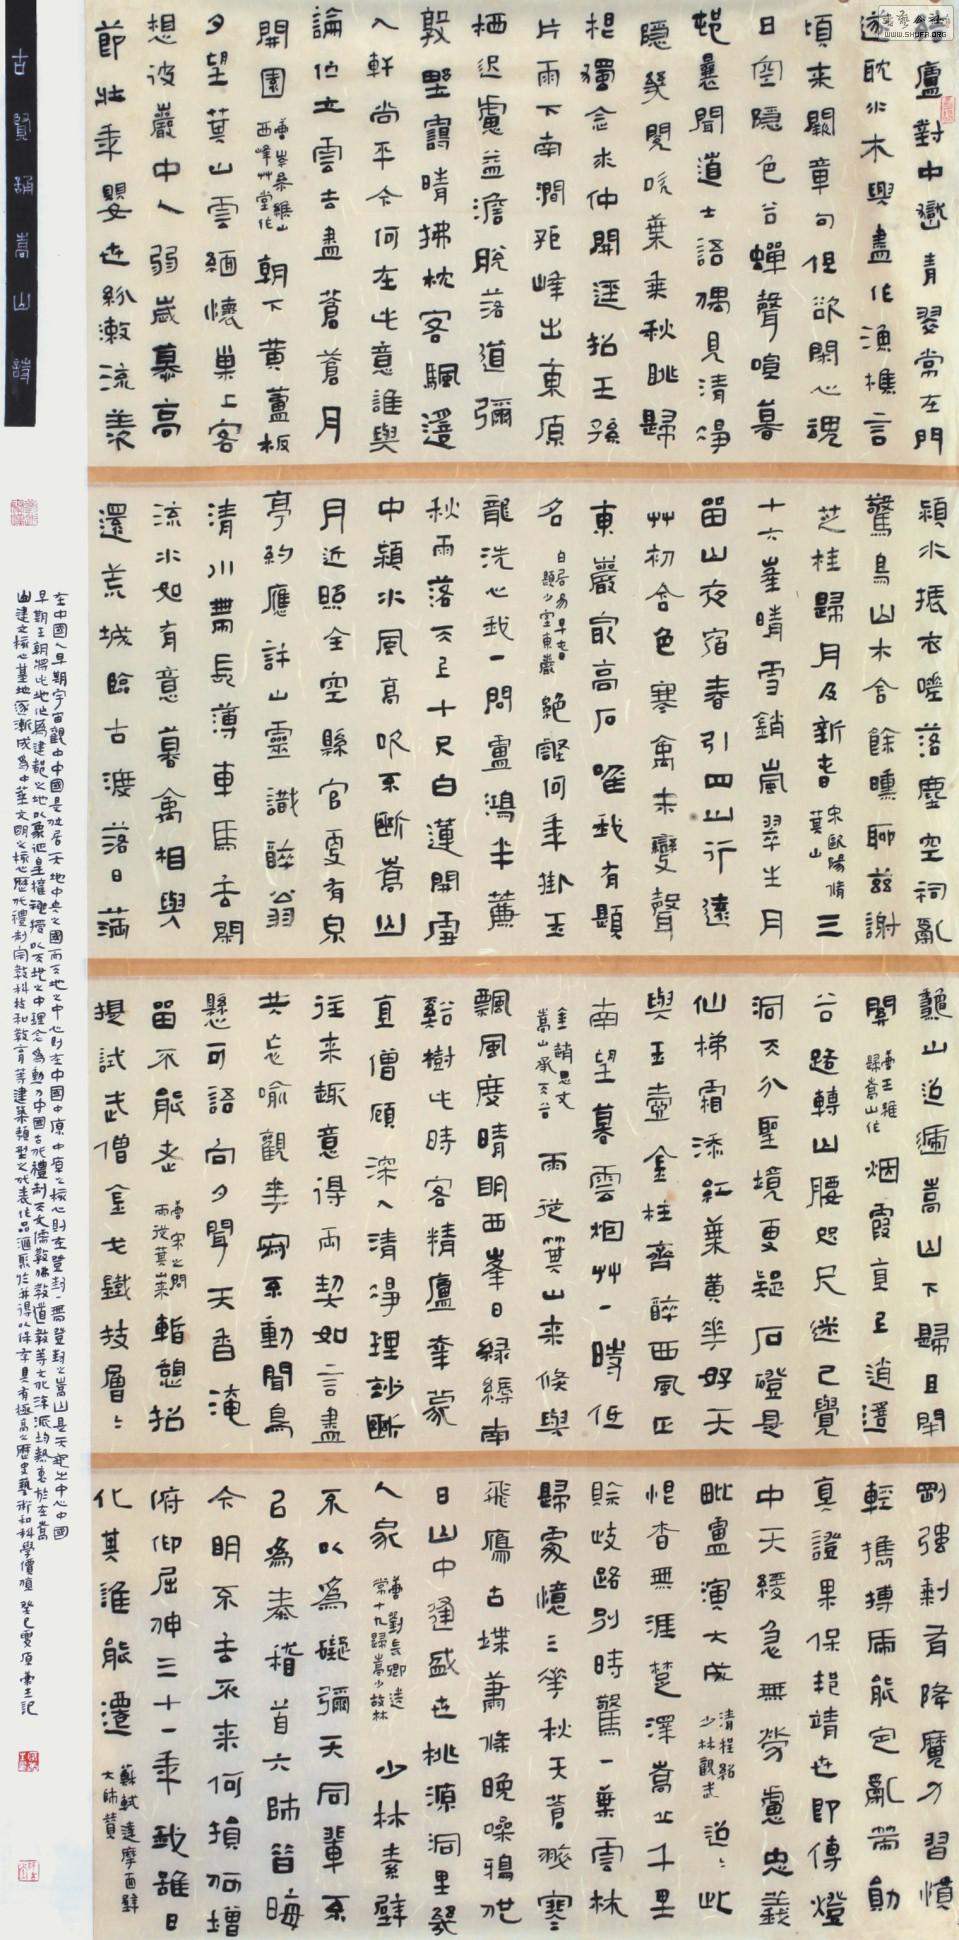 古賢誦嵩山詩
廬對中嶽青翠常在門
遂耽水木興盡作漁樵言
頃來闕章句但欲閑心魂
日空隱色谷蟬聲喧暮
邨曩聞道士語偶見清淨
隱几閱吹葉乘秋眺歸
根獨念求仲開逕招王孫
片雨下南澗孤峰出東原
栖遲慮益澹脫落道彌
敦野靄晴拂枕客颿遥
入軒尚平今何在此意誰與
論佇立雲去盡蒼蒼月
開園 唐岑參緱山西峰艸堂作 朝下黃蘆坂
夕望萯山雲緬懷巢上客
想彼巖中人弱歲慕高
節壯年嬰世紛漱流羨
潁水振衣嗟落塵空祠亂
驚鳥山木含餘曛聊兹謝
芝桂歸月及新春 宋歐陽脩箕山 三
十六峯晴雪銷嵐翠生月
留山夜宿春引四山行遠
艸初含色寒禽未變聲
東巖最高石唯我有題
名 白居易早春題少室東巖 絕壑何年掛玉
龍洗心我一問盧鴻半簾
秋雨落天上十尺白蓮開雪
中潁水風高吹不斷嵩山
月近照全空縣官更有泉
亭約應許山靈識醉翁
清川帶長薄車馬去閑
流水如有意暮禽相與
還荒城臨古渡落日滿
龝山迢遞嵩山下歸且閉
關 唐王維歸嵩山作 烟霞直上逍遥
谷路轉山腰咫尺迷已覺
洞天分聖境更疑石磴是
仙梯霜添紅葉黃華好天
與玉壺金柱齊醉西風正
南望暮雲烟艸一時低
金趙思文嵩山承天谷 雨從箕山來倏與
飄風度晴明西峯日綠縟南
谿樹此時客精廬幸蒙
真僧顧深入清淨理妙斷
往來趣意得兩契如言盡
共忘喻觀華寂不動聞鳥
懸可語向夕聞天香淹
留不能去 唐宋之問雨從箕山來 暫憩招
提試武僧金戈鐵技層層
剛強剩有降魔力習慣
輕擕搏虎能定亂帶勛
真證果保邦靖世即傳燈
中天緩急無勞慮忠義
毗盧演大成 清程紹少林觀武 迢迢此
恨杳無涯楚澤嵩丘千里
賒歧路別時驚一葉雲林
歸處憶三華秋天蒼翠寒
飛鴈古堞蕭條晚噪鴉他
日山中逢盛世桃源洞里幾
人家 唐劉長卿送常十九歸嵩少故林 少林素壁
不以爲礙彌天同輩不
以爲泰稽首六師昔晦
今明不去不來何損何增
俯仰屈伸三十一年我雖日
化其誰能遷 蘇軾達摩面壁大師贊
在中國人早期宇宙觀中中國是位居天地中央之國而天地之中心則在中國中原中原之核心則在登封一帶登封之嵩山是天地之中心中國
早期王朝將此地作爲建都之地以象徵皇權神授以天地之中理念爲動力中國古代禮制天文儒教佛教道教等文化流派均熱衷於在嵩
山建立核心基地逐漸成爲中華文明之核心歷代禮制宗教科技和教育等建築類型之代表作品滙聚於此得以保存具有極高之歷史藝術和科學價值 癸巳夏 記
WWW.SHUFA.ORG